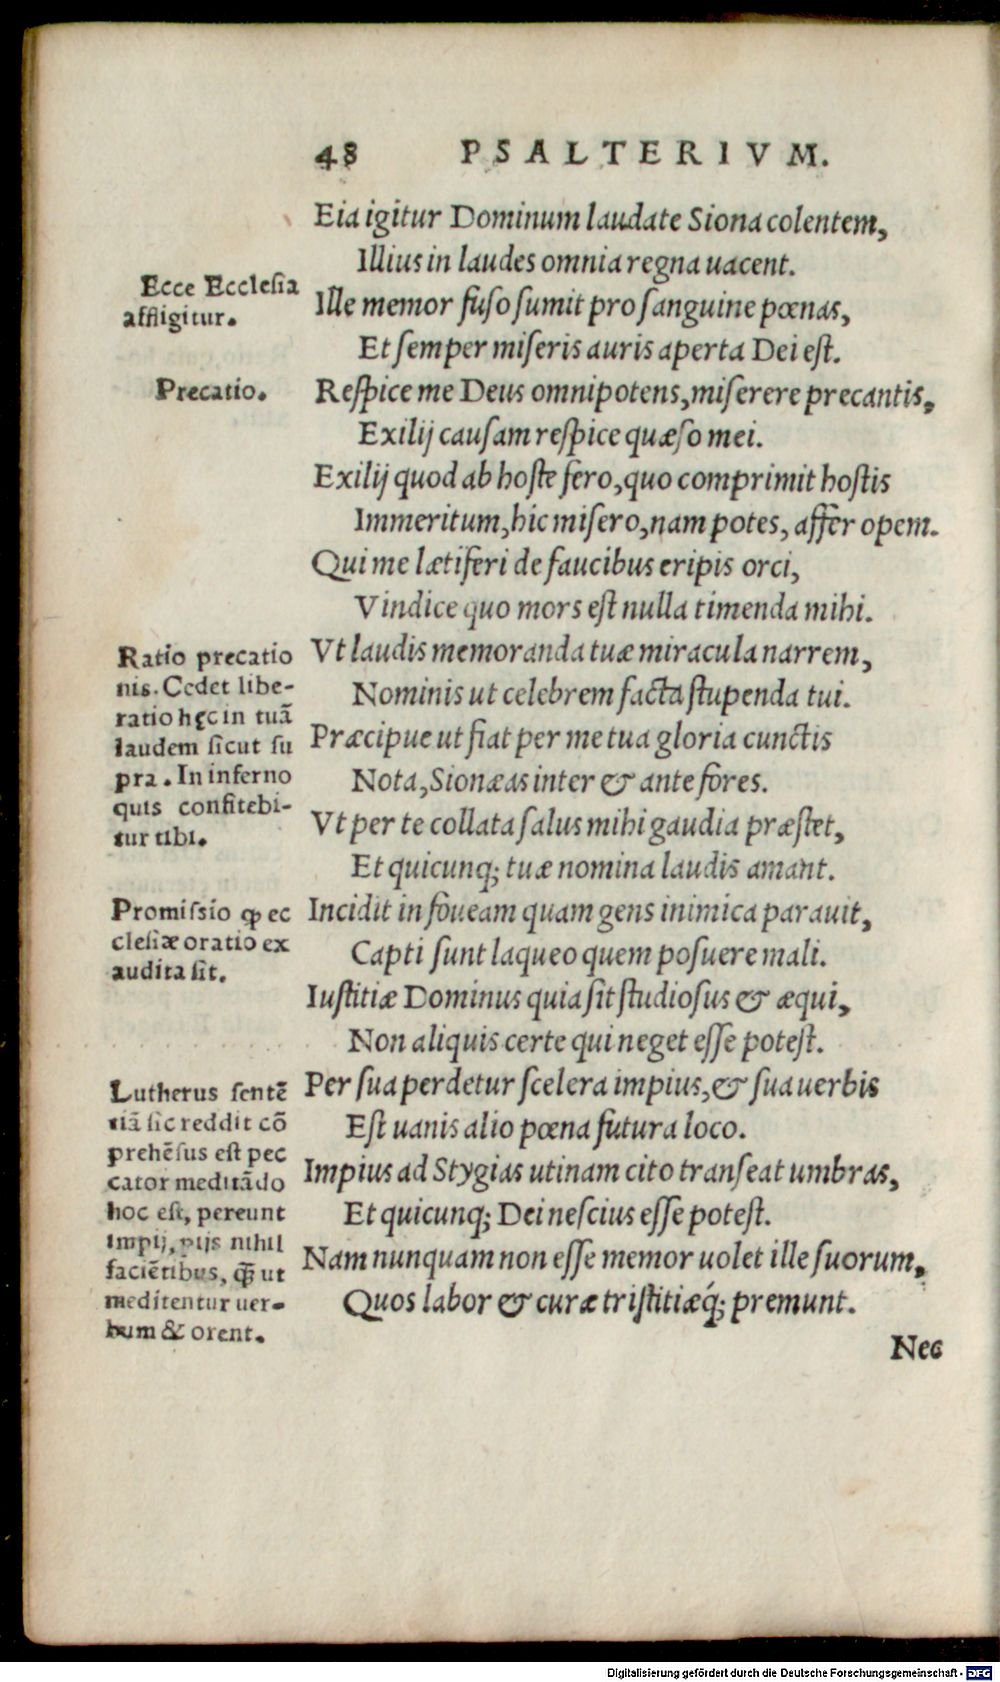 48 PSALTERIVM.
Eia igitur Dominum laudate Siona colentem,
Illius in laudes omnia regna uacent.
Ecce Ecclesia
affligitur.
Ille memor fuso sumit pro sanguine pœnas,
Et semper miseris auris aperta Dei est.
Precatio.
Respice me Deus omnipotens, miserere precantis,
Exilij causam respice quæso mei.
Exilij quod ab hoste fero, quo comprimit hostis
Immeritum, hic misero, nam potes, affer opem.
Qui me lætiferi de faucibus eripis orci,
Vindice quo mors est nulla timenda mihi.
Ratio precatio
nis. Cedet libe-
ratio hęc in tuā
laudem sicut su
pra. In inferno
quis confitebi-
tur tibi.
Vt laudis memoranda tuæ miracula narrem,
Nominis ut celebrem facta stupenda tui.
Præcipue ut fiat per me tua gloria cunctis
Nota, Sionæas inter & ante fores.
Vt per te collata salus mihi gaudia præstet,
Et quicunq; tuæ nomina laudis amant.
Promissio ꝙ ec
clesiæ oratio ex
audita sit.
Incidit in foueam quam gens inimica parauit,
Capti sunt laqueo quem posuere mali.
Iustitiæ Dominus quia sit studiosus & æqui,
Non aliquis certe qui neget esse potest.
Lutherus sentē
tiā sic reddit cō
prehēsus est pec
cator meditādo
hoc est, pereunt
impij, pijs nihil
faciētibus, q̄̃ ut
meditentur uer-
bum & orent.
Per sua perdetur scelera impius, & sua uerbis
Est uanis alio pœna futura loco.
Impius ad Stygias utinam cito transeat umbras,
Et quicunq; Dei nescius esse potest.
Nam nunquam non esse memor uolet ille suorum,
Quos labor & curæ tristitiæq́; premunt.
Nec
Digitalisierung gefördert durch die Deutsche Forschungsgemeinschaft - DFG